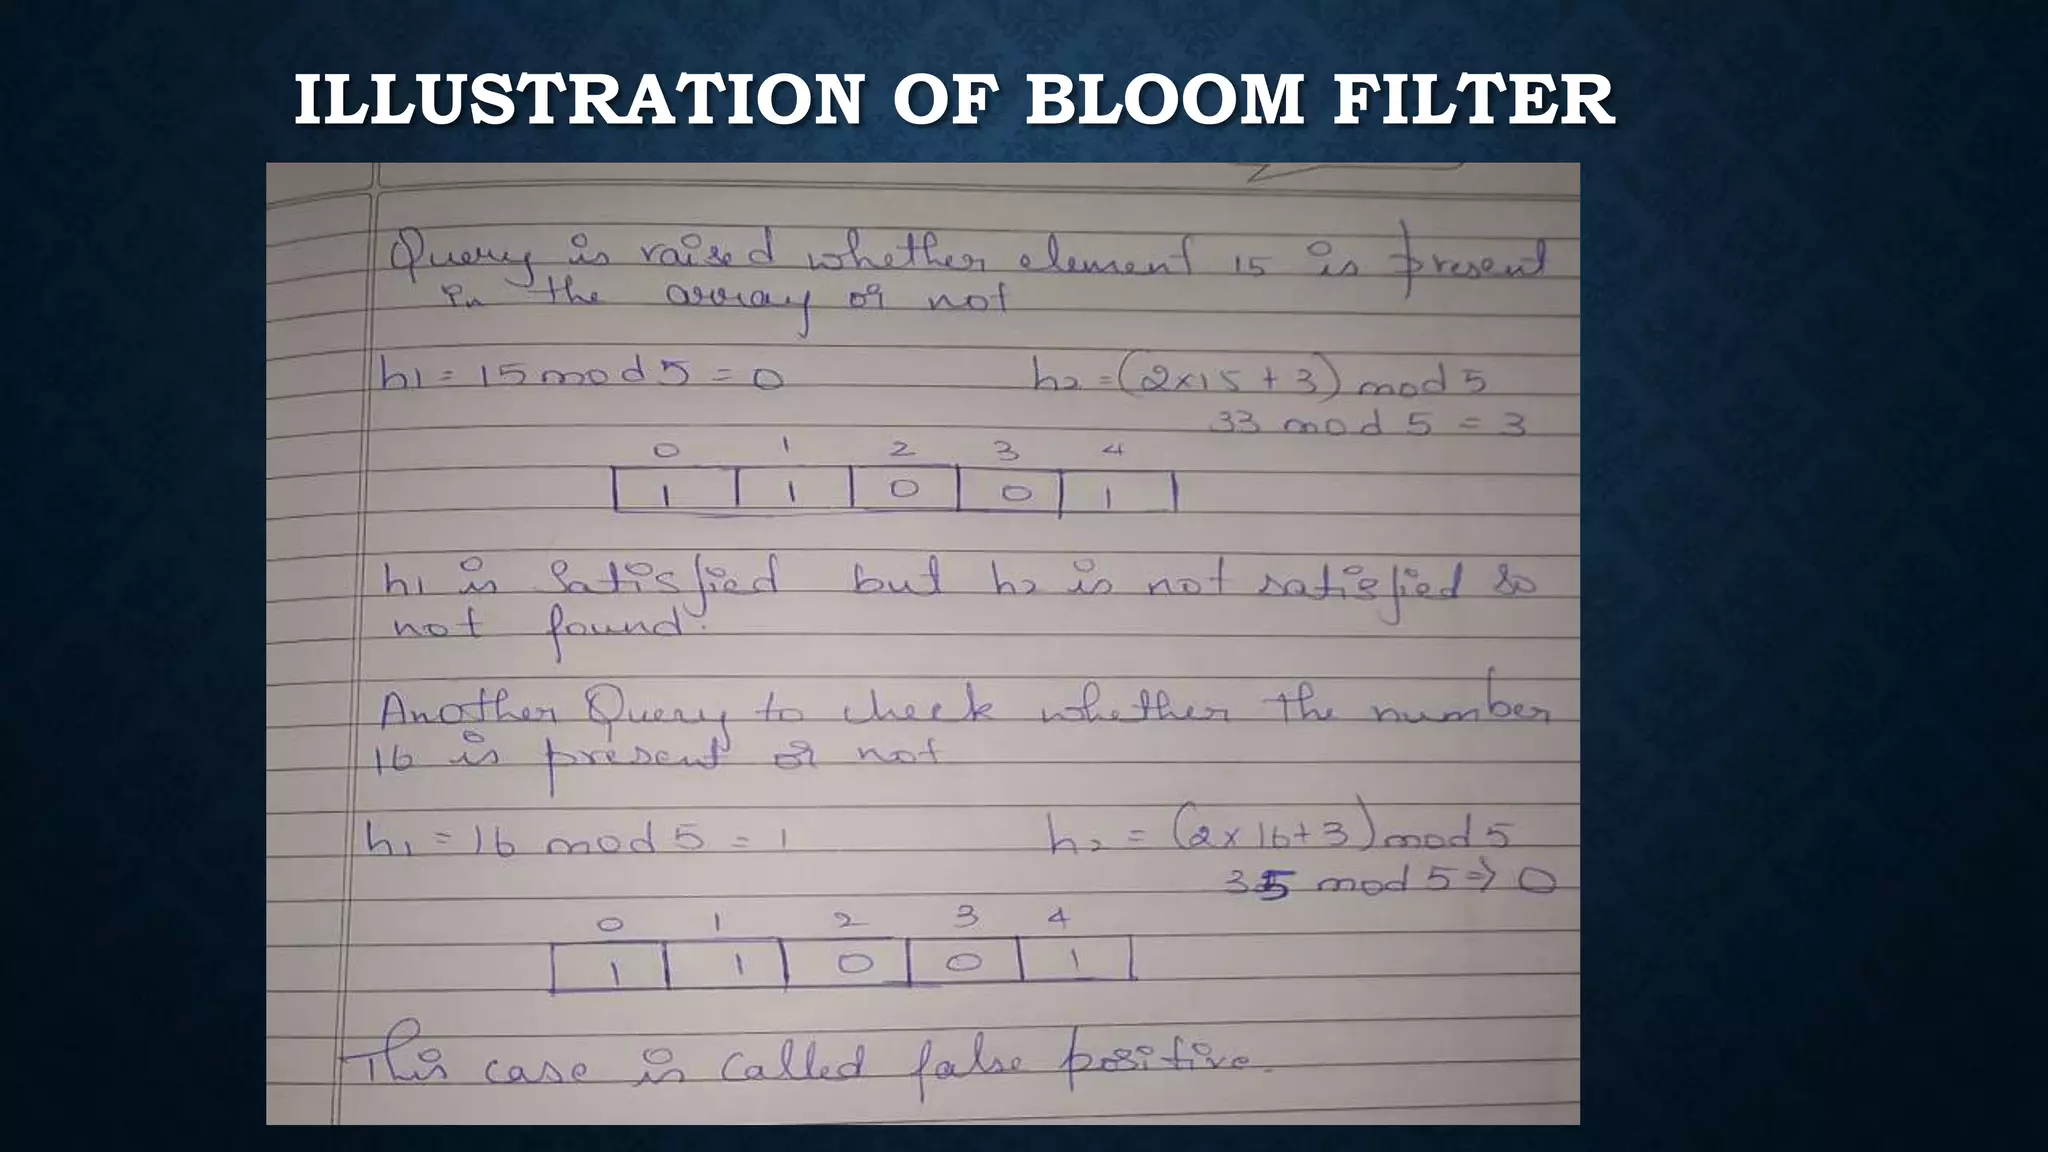 ILLUSTRATION OF BLOOM FILTER
Query is raised whether element 15 is present
in the array or not
h1 = 15 mod 5 = 0 h2 = (2x15 + 3) mod 5
33 mod 5 = 3
0 1 2 3 4
1 1 0 0 1
h1 is satisfied but h2 is not satisfied so
not found.
Another Query to check whether the number
16 is present or not
h1 = 16 mod 5 = 1 h2 = (2x16+3) mod 5
35 mod 5 => 0
0 1 2 3 4
1 1 0 0 1
This case is called false positive.